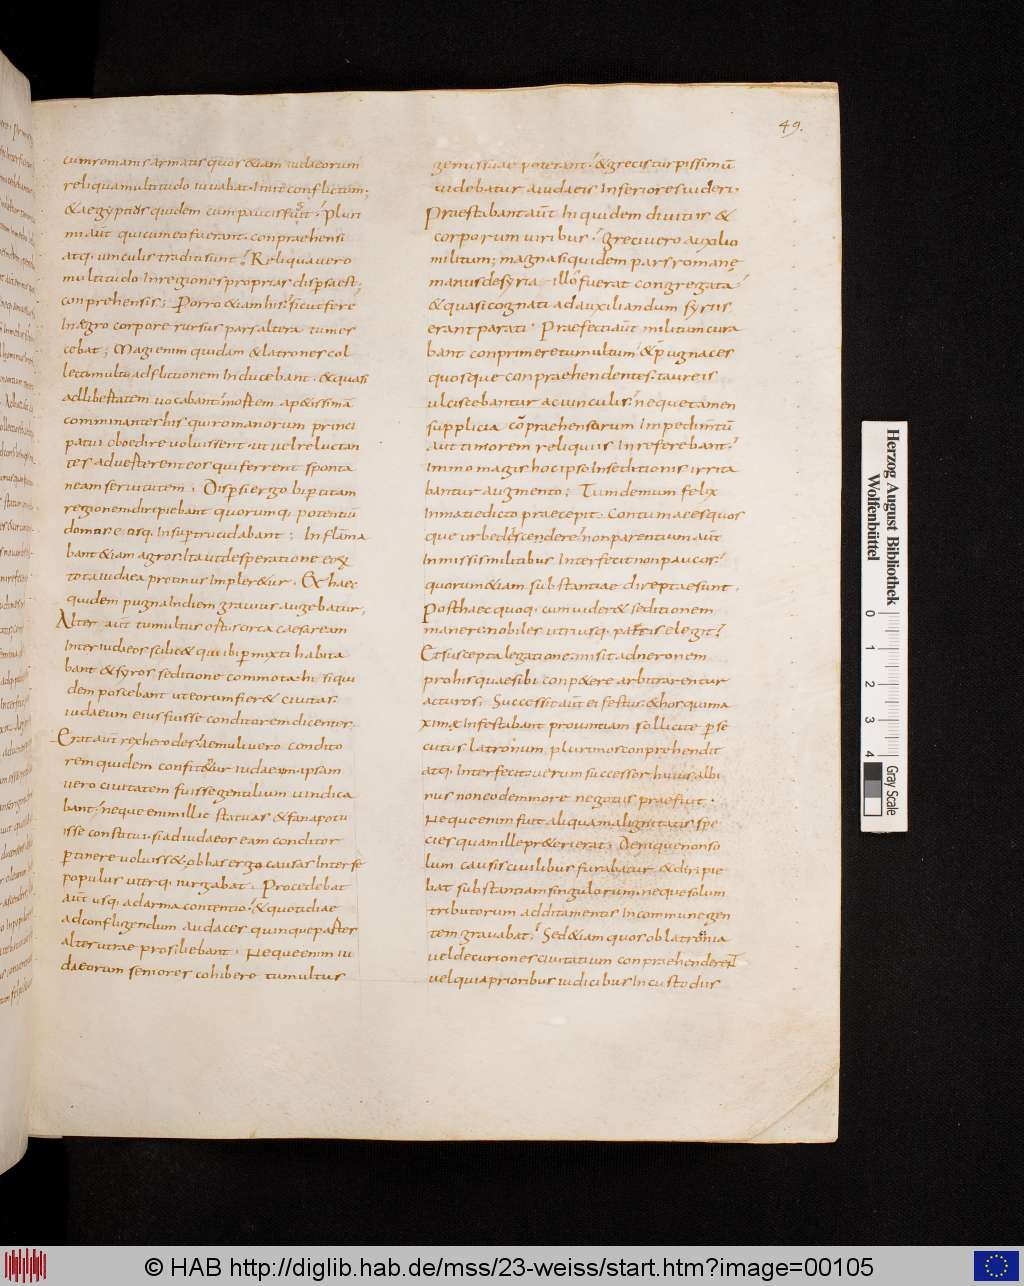 49.
cumromanis armatis quos &iam iudaeorum
reliquamultitudo iuuabat. Inire conflictum;
& aegyptius quidem cum paucis fugit; Pluri
mi aūt qui cum eo fuerant. conpraehensi
atq. uinculis traditi sunt; Reliqua uero
multitudo In regiones proprias dispsa est;
conprehensis; Porro &iam his; sicut fere
In ægro corpore rursus pars altera tumes
cebat; Magi enim quidam & latrones col
lecti multos ad
ad libertatem uocabant
comminantes his qui romanorum princi
patui oboedire uoluissent. ut uel reluctan
tes aduesterent eos qui ferrent sponta
neam seruitutem; Dispsi ergo bipertitam
regionem diripiebant quorumq. potentiū
domus eosq. Insup trucidabant; Inflāma
bant &iam agros. Ita ut desperatione eoꝝ
tota iudaea protinus Impler&ur. Et haec
quidem pugna In diem grauius augebatur;
Alter aūt tumultus ortus circa caesaream
Inter iudeos scilic& qui ibi pmixti habita
bant & syros seditione commota. hi siqui
dem poscebant ut eorum fier& ciuitas.
iudaeum eius fuisse conditorem dicentes;
Erat aūt rex herodes; aemuli uero condito
rem quidem confit&ur iudaeum. ipsam
uero ciuitatem fuisse gentilium uindica
bant; neque enim illic statuas & fana potu
isse constitui. si ad iudaeos eam conditor
ptinere uoluiss&. ob has ergo causas Inter se
populus uterq. iurgabat. Procedebat
aūt usq. ad arma contentio. & quotidiae
ad confligendum audaces quinque
alterutrae prosiliebant. Neque enim iu
daeorum seniores cohibere tumultus
gentis suae poterant. & grecis turpissimū
uidebatur a iudaeis Inferiores uideri.
Praestabant aūt hi quidem diuitiis &
corporum uiribus; greci uero auxilio
militum; magna siquidem pars romanę
manus de syria illo fuerat congregata
& quasi cognati ad auxiliandum syriis
erant parati. Praefecti aūt militum cura
bant conprimere tumultum. & pugnaces
quosque conpraehendentes. taureis
ulciscebantur ac uinculis; neque tamen
supplicia cōpraehensorum Impedimtū
aut timorem reliquis In referebant;
Immo magis hoc ipso In seditionis irrita
bantur augmento; Tum demum felix
In matiedicto praecepit. Contumaces quos
que urbe descendere; non parentium aūt
Inmissis militibus Interfecit non paucos;
quorum &iam substantiae direptae sunt.
Posthaec quoq. cum uider& seditionem
manere. nobiles utriusq. partis elegit;
Et suscepta legatione. misit ad neronem
pro his quae sibi conpetere arbitrarentur
acturos; Successit aūt ei festus. & hos qui ma
xim& Infestabant prouintiam sollicite pse
cutus latronum plurimos conprehendit
atq. Interfecit. uerum successor huius albi
nus non eodem more negotiis praefuit.
Neque enim fuit aliqua malignitatis spe
cies quam ille pr&erierat; Denique non so
lum causis ciuilibus furabatur & diripie
bat substantiam singulorum. neque solum
tributorum additamentis In commune gen
tem grauabat; Sed &iam quos ob latronia
uel decuriones ciuitatium conpraehenderent
uel qui a prioribus iudicibus In custodiis
Herzog August Bibliothek
Wolfenbüttel
0 1 2 3 4
Gray Scale
© HAB http://diglib.hab.de/mss/23-weiss/start.htm?image=00105